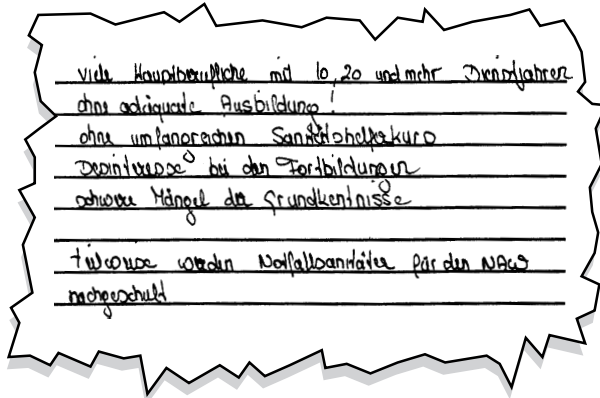 viele Hauptberufliche mit 10, 20 und mehr Dienstjahren
ohne adäquate Ausbildung!
ohne umfangreichen Sanitätshelferkurs
Desinteresse bei den Fortbildungen
schwere Mängel der Grundkentnisse
teilweise werden Notfallsanitäter für den NAW
nachgeschult